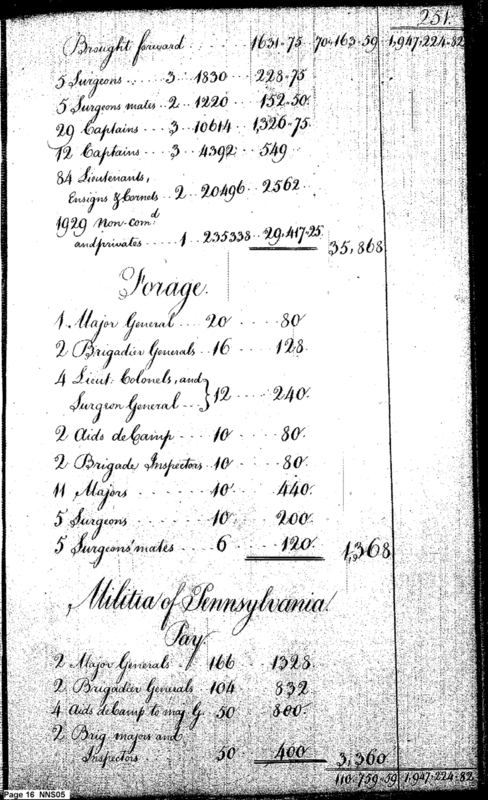 251.
Brought forward . . . . 1631-75 70-163-59 1,947-224-82
5 Surgeons . . . 3 1830 228-75
5 Surgeons mates . . 2 1220 152-50.
29 Captains . . . 3 10614 1,326-75
12 Captains . . . 3 4392 549
84 Lieutenants,
Ensigns & Cornets . . 2 20496 2562
1929 Non-comd
and privates . . . 1 235338 29,417-25 35,868
Forage.
1 Major General . . . 20 . . . . 80
2 Brigadier Generals . . 16 . . . . 128
4 Lieut. Colonels, and
Surgeon General . . . } 12 . . . . 240.
2 Aids de Camp . . . 10 . . . . 80.
2 Brigade Inspectors . . 10 . . . . 80.
11 Majors . . . . . 10 . . . . 440.
5 Surgeons . . . . . 10 . . . . 200.
5 Surgeons' mates . . . 6 . . . . 120. 1,368
Militia of Pennsylvania.
Pay.
2 Major Generals . . 166 . . . . 1328.
2 Brigadier Generals . . 104 . . . . 832
4 Aids de Camp to maj G. 50 . . . . 800.
2 Brig majors and
Inspectors . . . . 50 . . . . 400 3,360
110-759-59 1,947-224-82
Page 16 NNS05